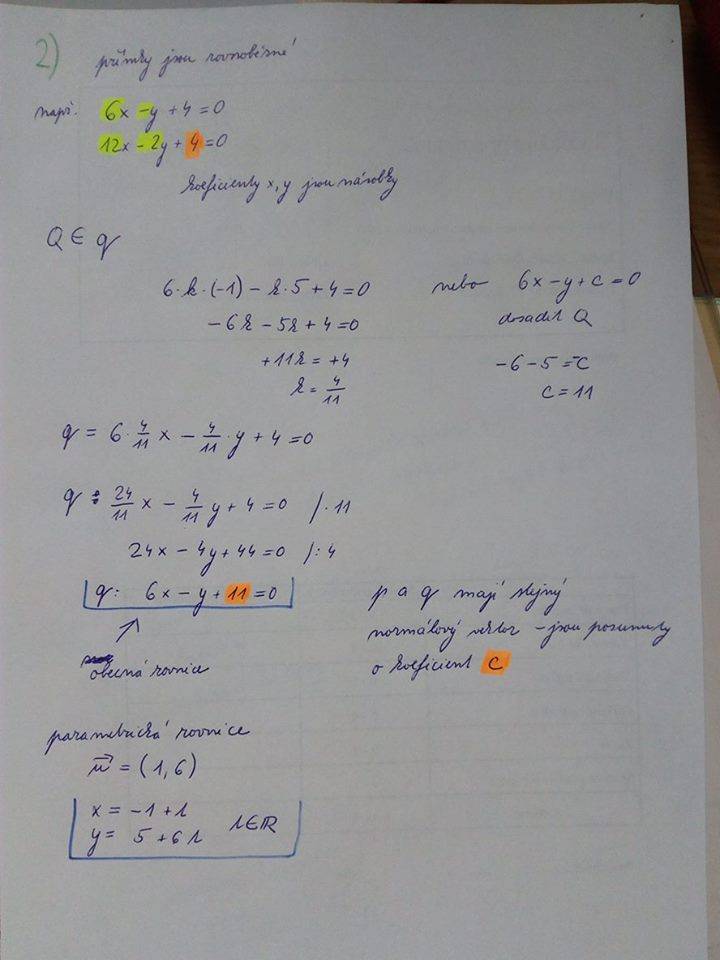 2) přímky jsou rovnoběžné
např. 6x - y + 4 = 0
12x - 2y + 4 = 0
koeficienty x, y jsou násobky
Q ∈ q
6·k·(-1) - k·5 + 4 = 0
-6k - 5k + 4 = 0
+11k = +4
k = 4/11
nebo 6x - y + c = 0
dosadit Q
-6 - 5 = -c
c = 11
q = 6·4/11 x - 4/11·y + 4 = 0
q: 24/11 x - 4/11 y + 4 = 0 /·11
24x - 4y + 44 = 0 /:4
q: 6x - y + 11 = 0
obecná rovnice
p a q mají stejný
normálový vektor - jsou posunuty
o koeficient c
parametrická rovnice
u⃗ = (1, 6)
x = -1 + t
y = 5 + 6t t∈R